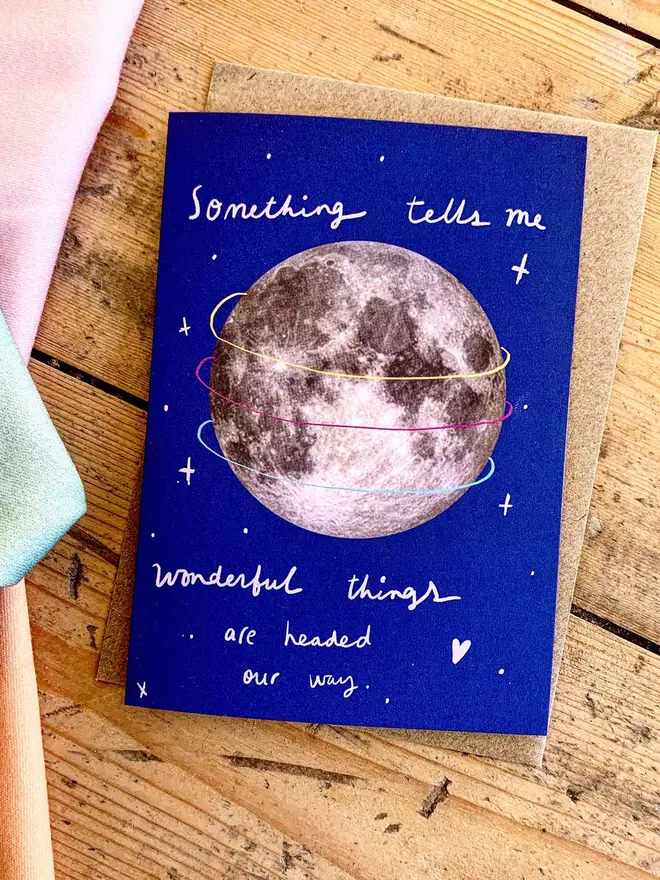 Something tells me
wonderful things
are headed
our way.
x